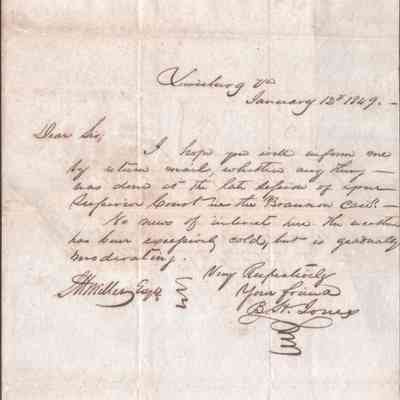 Lewisburg Va
January 12th 1849. –
Dear Sir,
I hope you will inform me
by return mail, whether any thing –
was done at the late session of your
Superior Court in the Brannon case –
No news of interest here. The weather
has been excessively cold, but is gradually
moderating.
Very Respectively
Your friend
B. H. Jones
Miller Esqr